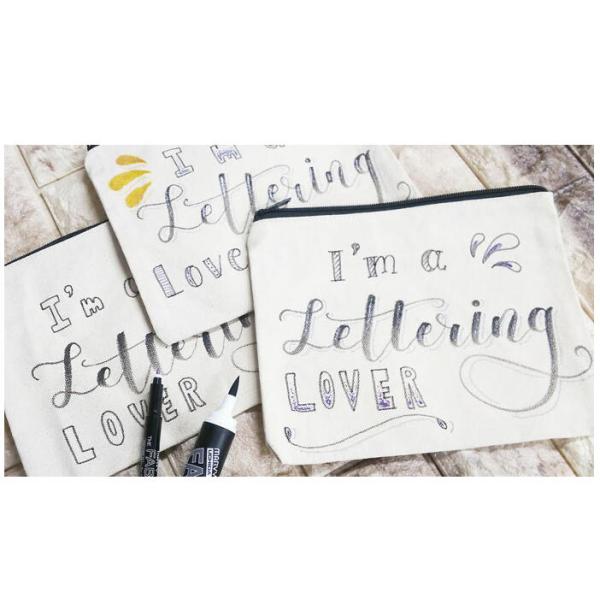 I'm a
Lettering
LOVE
I'm a
Lettering
LOVER
I'm a
Lettering
LOVER
THE FAB
MARV
FA